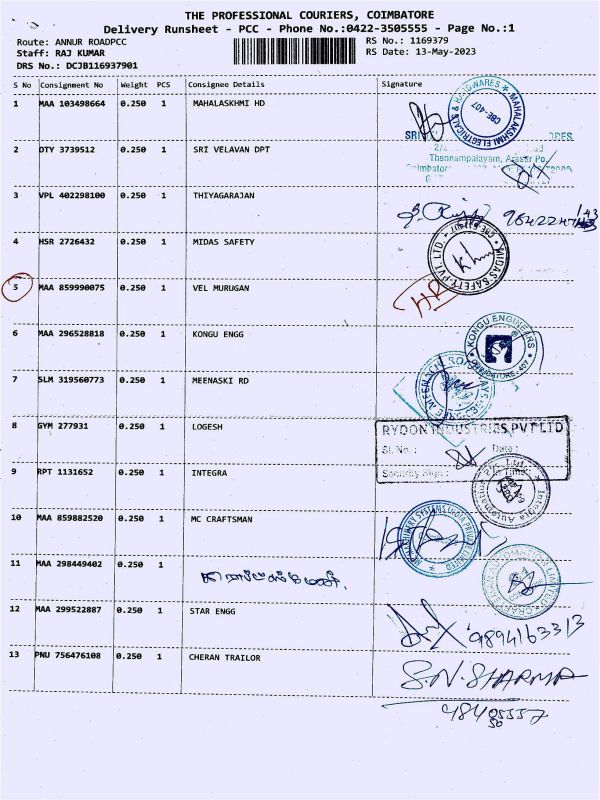 THE PROFESSIONAL COURIERS, COIMBATORE
Delivery Runsheet - PCC - Phone No.:0422-3505555 - Page No.:1
Route: ANNUR ROADPCC RS No.: 1169379
Staff: RAJ KUMAR RS Date: 13-May-2023
DRS No.: DCJB116937901
S No Consignment No Weight PCS Consignee Details Signature
1 MAA 103498664 0.250 1 MAHALASKHMI HD
MAHALAKSHMI ELECTRICALS & HARDWARES
CBE-407
2 DTY 3739512 0.250 1 SRI VELAVAN DPT
Thennampalayam, Arasur Po,
3 VPL 402298100 0.250 1 THIYAGARAJAN
4 HSR 2726432 0.250 1 MIDAS SAFETY
MIDAS SAFETY PVT. LTD.
5 MAA 859990075 0.250 1 VEL MURUGAN
HR
6 MAA 296528818 0.250 1 KONGU ENGG
KONGU ENGINEERS
COIMBATORE - 407
7 SLM 319560773 0.250 1 MEENASKI RD
8 GYM 277931 0.250 1 LOGESH
RYDON INDUSTRIES PVT LTD
Sl. No.: Date:
Security Sign.: In Time:
9 RPT 1131652 0.250 1 INTEGRA
Integra Automation Pvt. Ltd.
10 MAA 859882520 0.250 1 MC CRAFTSMAN
11 MAA 298449402 0.250 1
12 MAA 299522887 0.250 1 STAR ENGG
9894163313
13 PNU 756476108 0.250 1 CHERAN TRAILOR
S.N.SHARMA